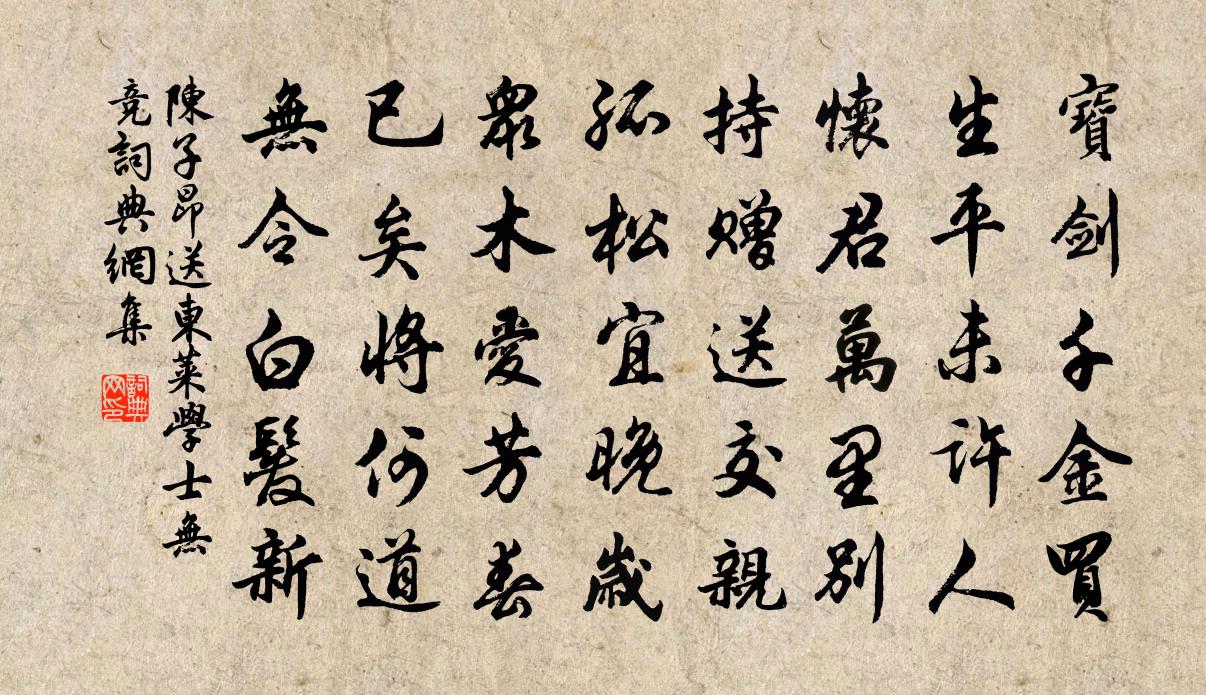 寶劍千金買
生平未許人
懷君萬里別
持贈送交親
孤松宜晚歲
眾木愛芳春
已矣將何道
無令白髮新
陳子昂送東萊學士無
竞詞典網集
詞典
网印